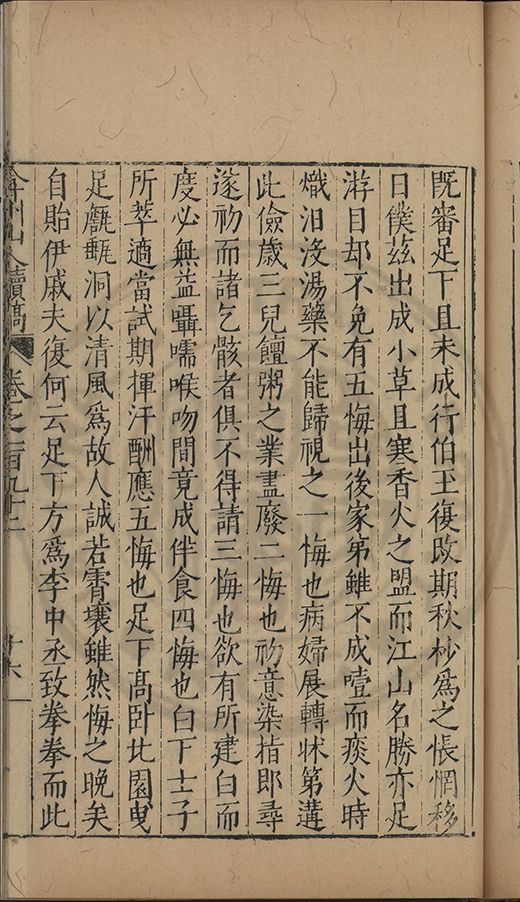 既審足下且未成行伯玉復改期秋杪爲之悵惘移
日僕茲出成小草且寒香火之盟而江山名勝亦足
游目却不免有五悔出後家弟雖不成噎而痰火時
熾汨沒湯藥不能歸視之一悔也病婦展轉牀第溝
此儉歲三兒饘粥之業盡廢二悔也初意染指即尋
遂初而諸乞骸者俱不得請三悔也欲有所建白而
度必無益囁嚅喉吻間竟成伴食四悔也白下士子
所萃適當試期揮汗酬應五悔也足下高卧北園曳
足甗甌洞以清風爲故人誠若霄壤雖然悔之晚矣
自貽伊戚夫復何云足下方爲李中丞致拳拳而此
弇州山人續稿 卷之一百九十二 十六